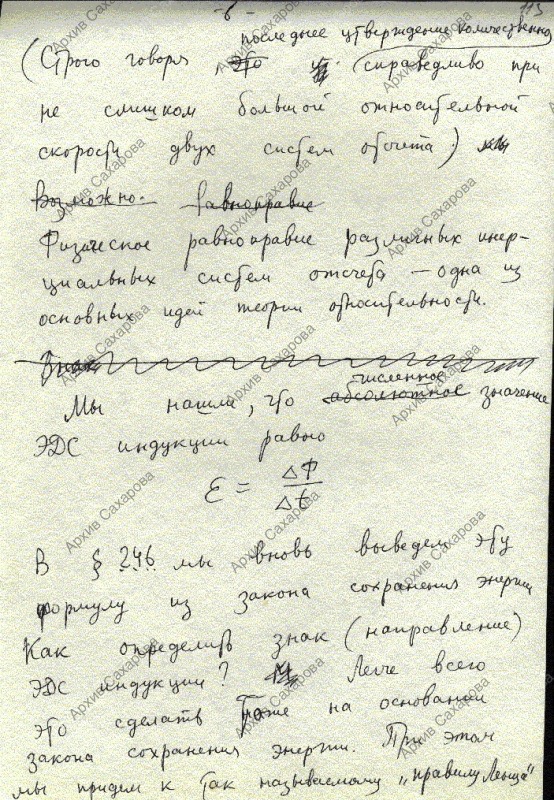 -6-
113
последнее утверждение количественно
(Строго говоря это справедливо при
не слишком большой относительной
скорости двух систем отсчета)
Возможно. равноправие
Физическое равноправие различных инер-
циальных систем отсчета — одна из
основных идей теории относительности.
численное
Мы нашли, что абсолютное значение
ЭДС индукции равно
ε = ΔΦ/Δt
В § 246 мы вновь выведем эту
формулу из закона сохранения энергии
Как определить знак (направление)
ЭДС индукции? Легче всего
это сделать тоже на основании
закона сохранения энергии. При этом
мы придем к так называемому „правилу Ленца"
Архив Сахарова